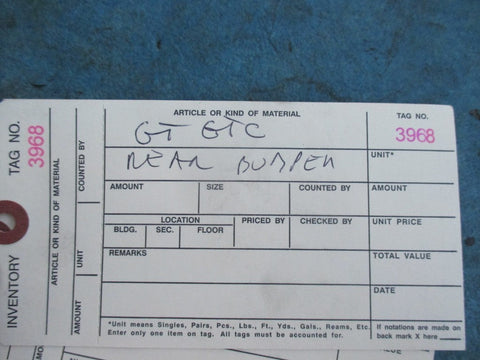 INVENTORY TAG NO. 3968
ARTICLE OR KIND OF MATERIAL
AMOUNT UNIT COUNTED BY
ARTICLE OR KIND OF MATERIAL
GT GTC
REAR BUMPER
TAG NO.
3968
UNIT*
AMOUNT SIZE COUNTED BY AMOUNT
LOCATION PRICED BY CHECKED BY UNIT PRICE
BLDG. SEC. FLOOR
REMARKS TOTAL VALUE
DATE
*Unit means Singles, Pairs, Pcs., Lbs., Ft., Yds., Gals., Reams, Etc.
Enter only one item on tag. All tags must be accounted for.
If notations are made on
back mark X here